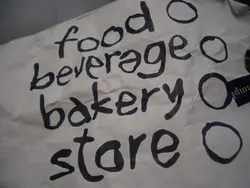 food
beverage
bakery
store